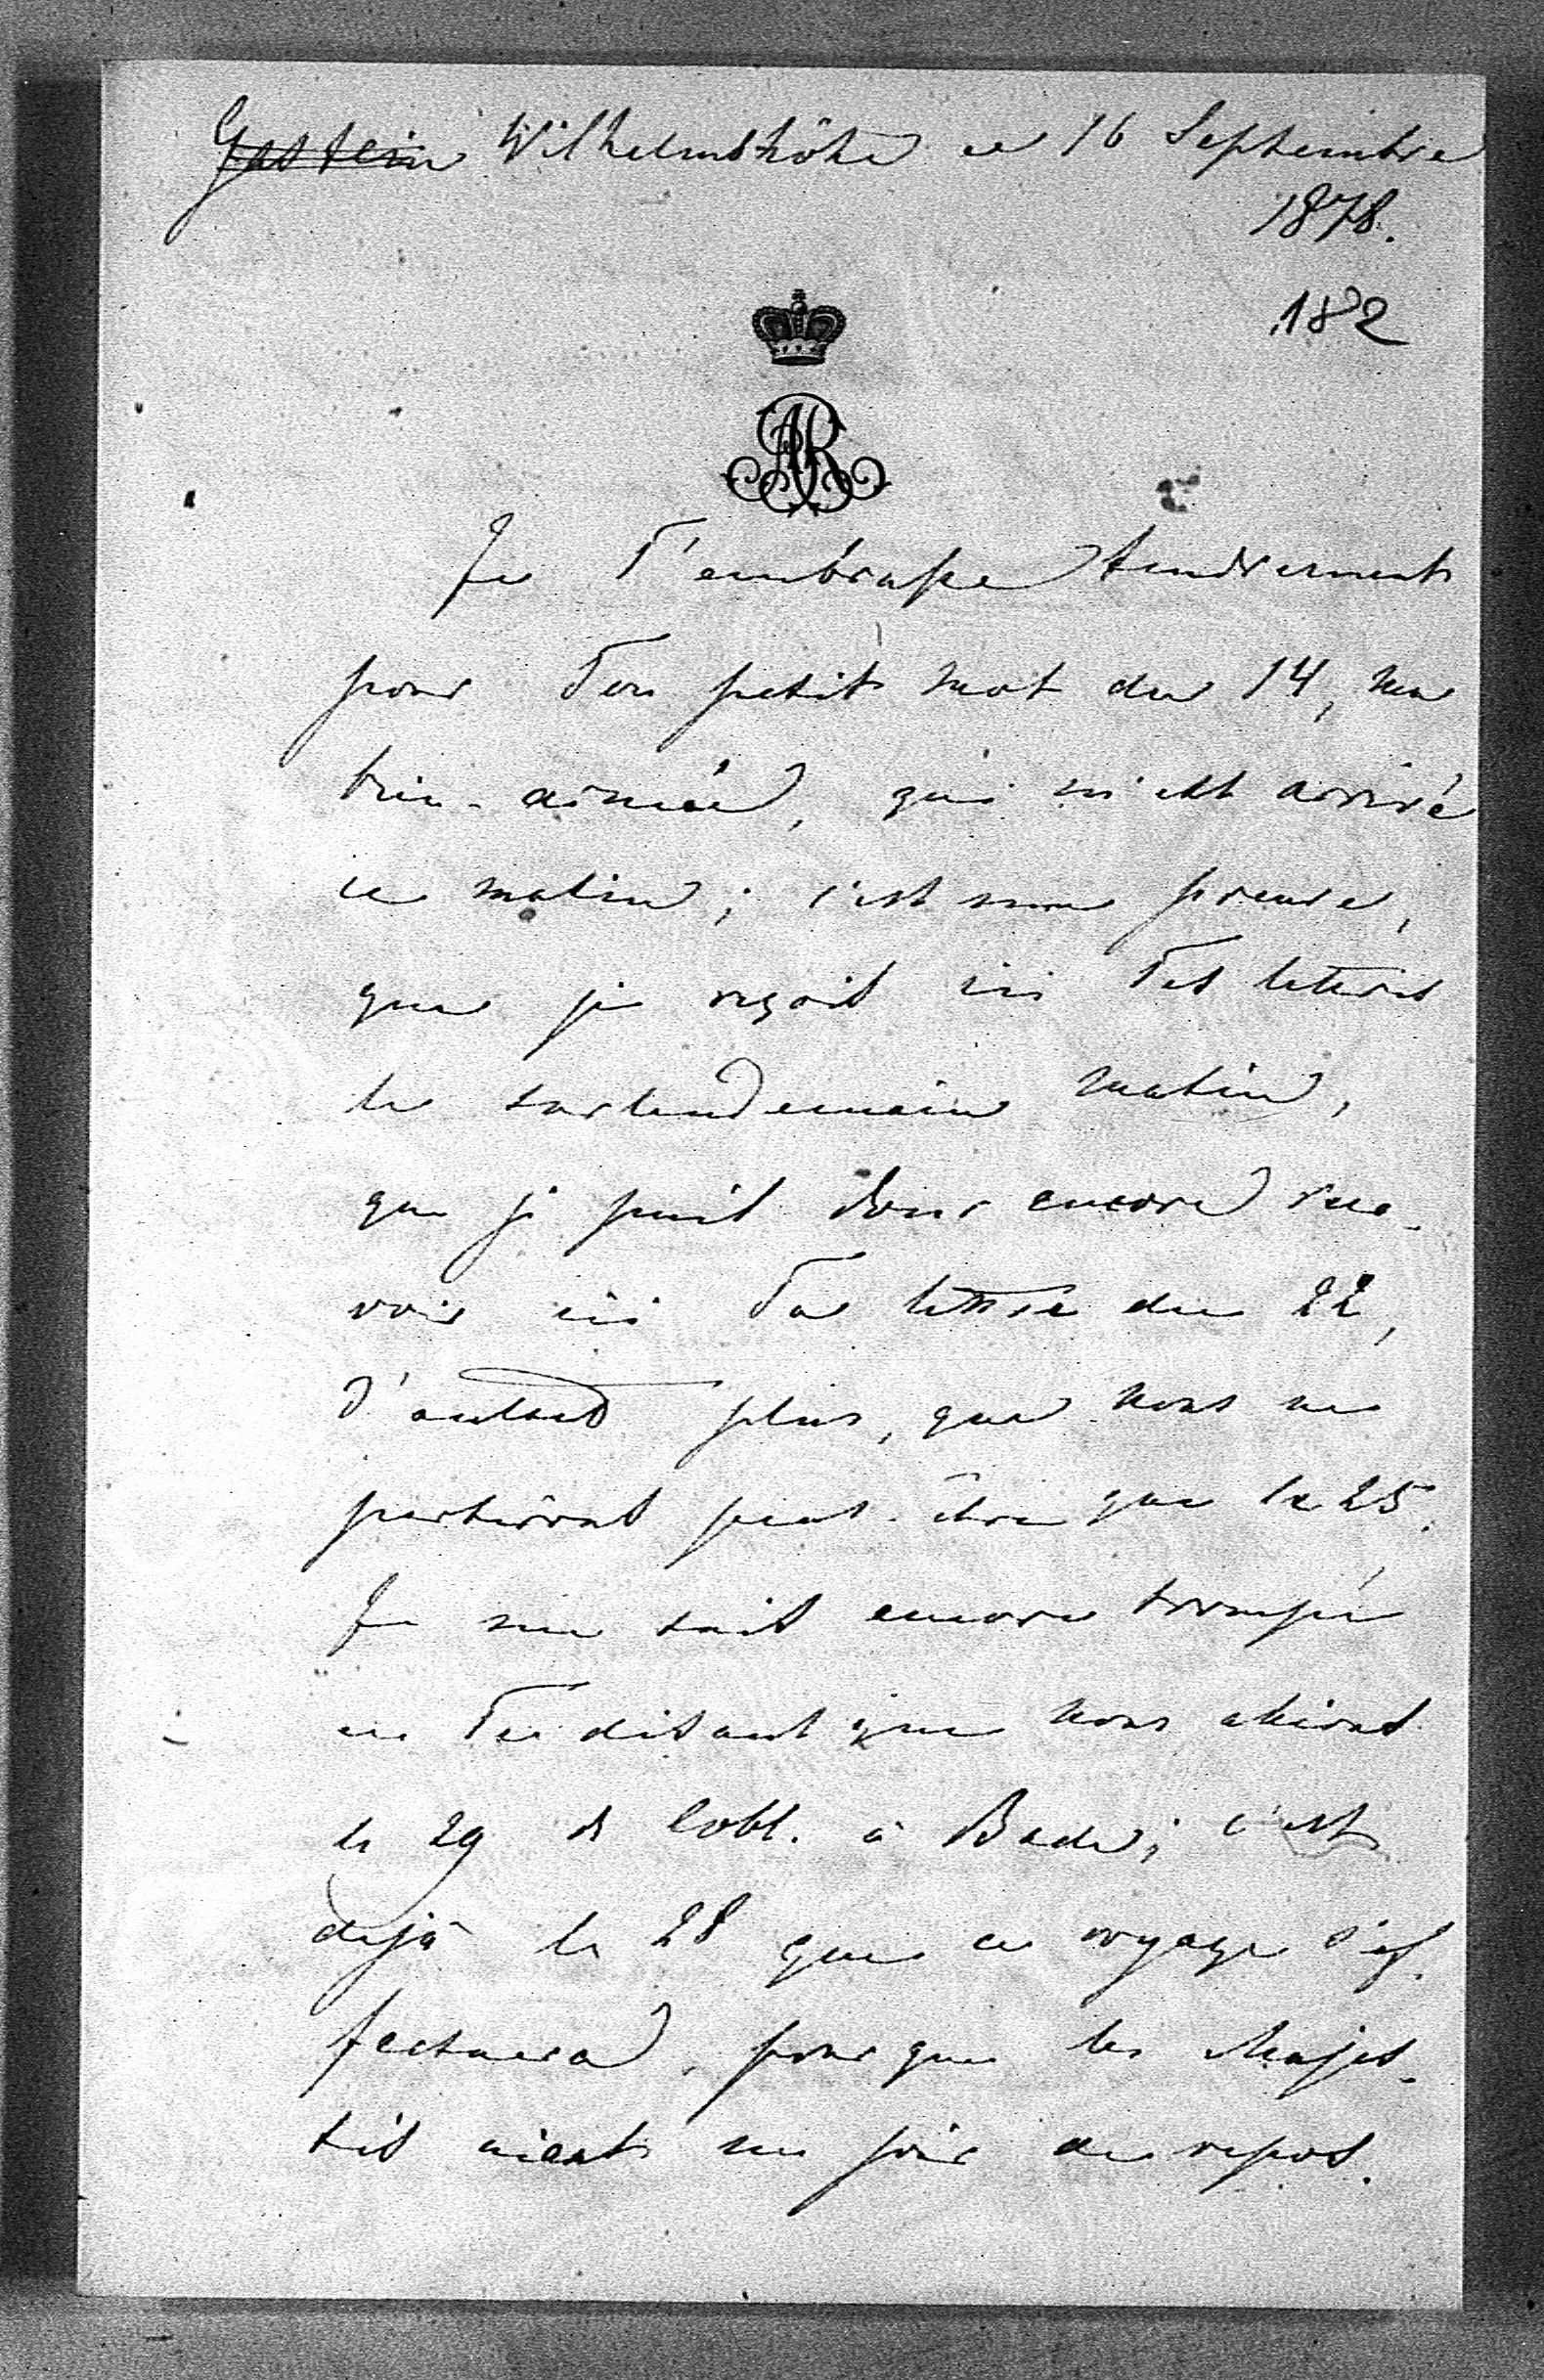 ~~Gastein~~ Wilhelmshöhe ce 16 Septembre
1878.
182
AR
Je T'embrasse tendrement
pour Ton petit mot du 14, ma
bien-aimée, qui m'est arrivé
ce matin; c'est une preuve,
que je reçois ici Tes lettres
le surlendemain matin,
que je puis donc encore rece-
voir ici Ta lettre du 22,
d'autant plus, que nous ne
partirons peut-être que le 25.
Je me suis encore trompé
en Te disant que nous allions
le 29 d Cobl. à Bade; c'est
déjà le 28 que ce voyage s'ef-
fectuera, pour que les Majes-
tés aient un jour de repos.